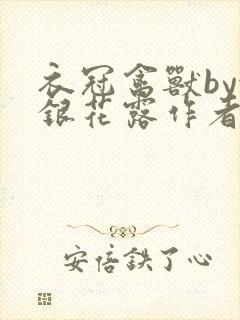 衣冠禽獸by
銀花露作者
安倍鉄了心